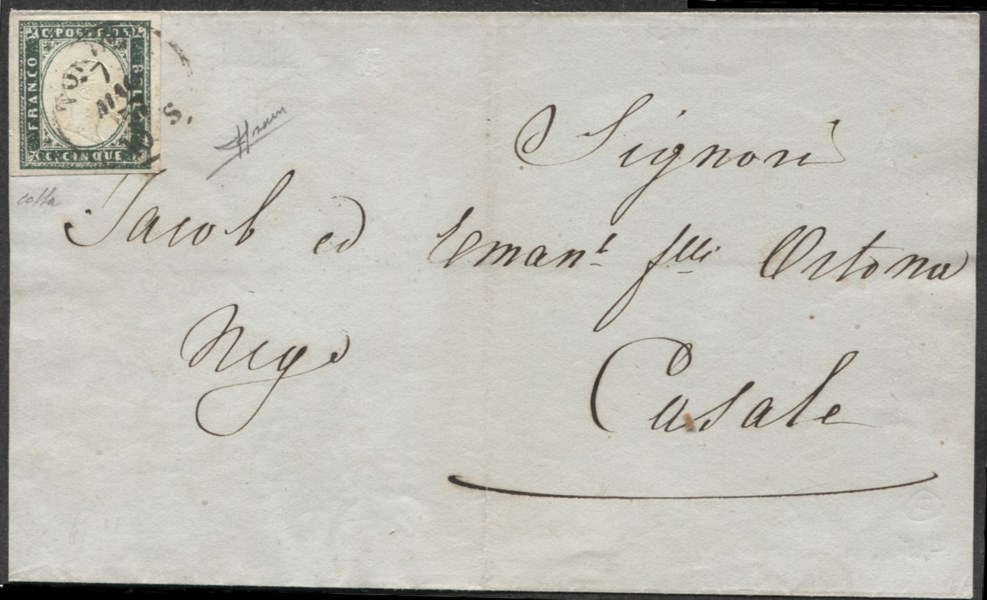 C. POSTE
FRANCO
BOLLO
C. CINQUE
7
S.
Signori
Jacob ed Eman.l flli Ortona
Neg.
Casale